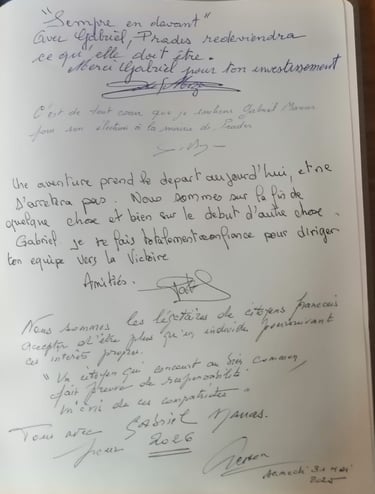 "Sempre en davant"
Avec Gabriel, Prades redeviendra
ce qu'elle doit être.
Merci Gabriel pour ton investissement
C'est de tout coeur que je soutiens Gabriel
pour son élection à la mairie de Prades
Une aventure prend le départ aujourd'hui, et ne
s'arretera pas. Nous sommes sur la fin de
quelque chose et bien sur le debut d'autre chose.
Gabriel je te fais totalement confiance pour diriger
ton equipe vers la Victoire
Amitiés.
Nous sommes les légataires de citoyens francais
accepter d'être plus qu'un individu poursuivant
ces interêts propres.
"Un citoyen qui concourt au bien commun,
fait preuve de responsabilité
de ces compatriotes"
Tous avec Gabriel
pour 2026
Samedi 31 Mai
2025